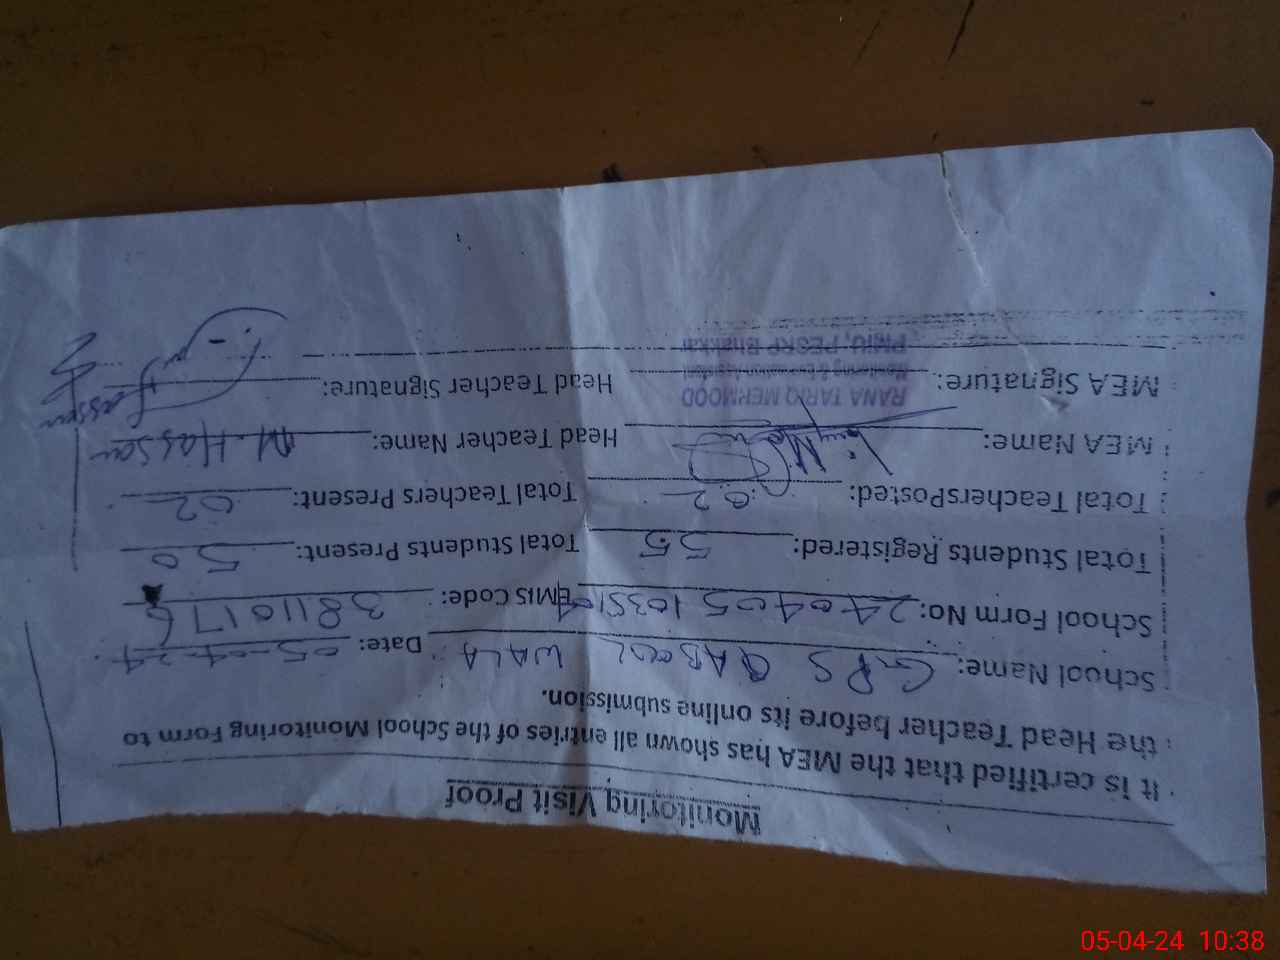 Monitoring Visit Proof
It is certified that the MEA has shown all entries of the School Monitoring Form to
the Head Teacher before its online submission.
School Name: GPS QABOOL WALA Date: 05-04-24
School Form No: EMIS Code: 38110176
Total Students Registered: 55 Total Students Present: 50
Total TeachersPosted: 02 Total Teachers Present: 02
MEA Name: Head Teacher Name: M. Hassan
RANA TARIQ MEHMOOD
MEA Signature: Head Teacher Signature: Hassan
Monitoring & Evaluation Assistant
PMIU, PESRP Bhakkar
05-04-24 10:38